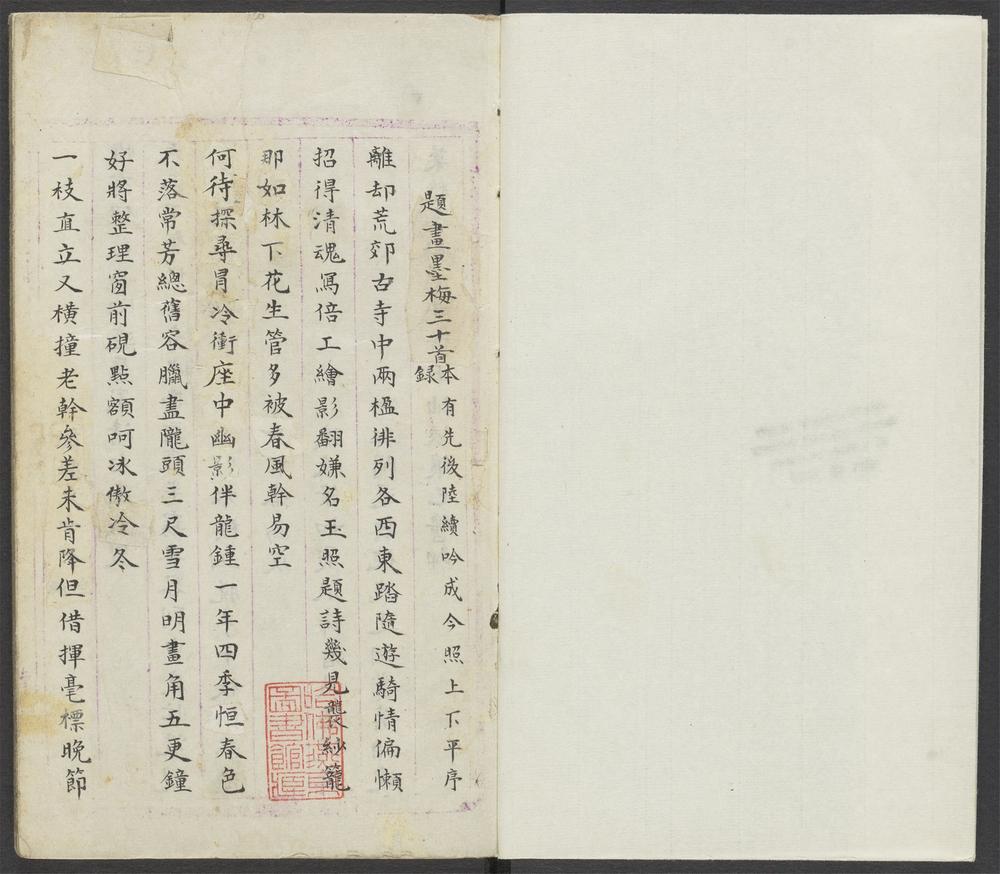 題畫墨梅三十首本有先後陸續吟成今照上下平序
錄
離却荒郊古寺中兩楹徘列各西東踏隨遊騎情偏懶
招得清魂寫倍工繪影翻嫌名玉照題詩幾見襲紗籠
那如林下花生管多被春風幹易空
何待探尋冒冷衝座中幽影伴龍鍾一年四季恒春色
不落常芳總舊容臘盡隴頭三尺雪月明畫角五更鐘
好將整理窗前硯點額呵冰傲冷冬
一枝直立又橫撞老幹參差未肯降但借揮毫標晚節
哈佛燕京
圖書館